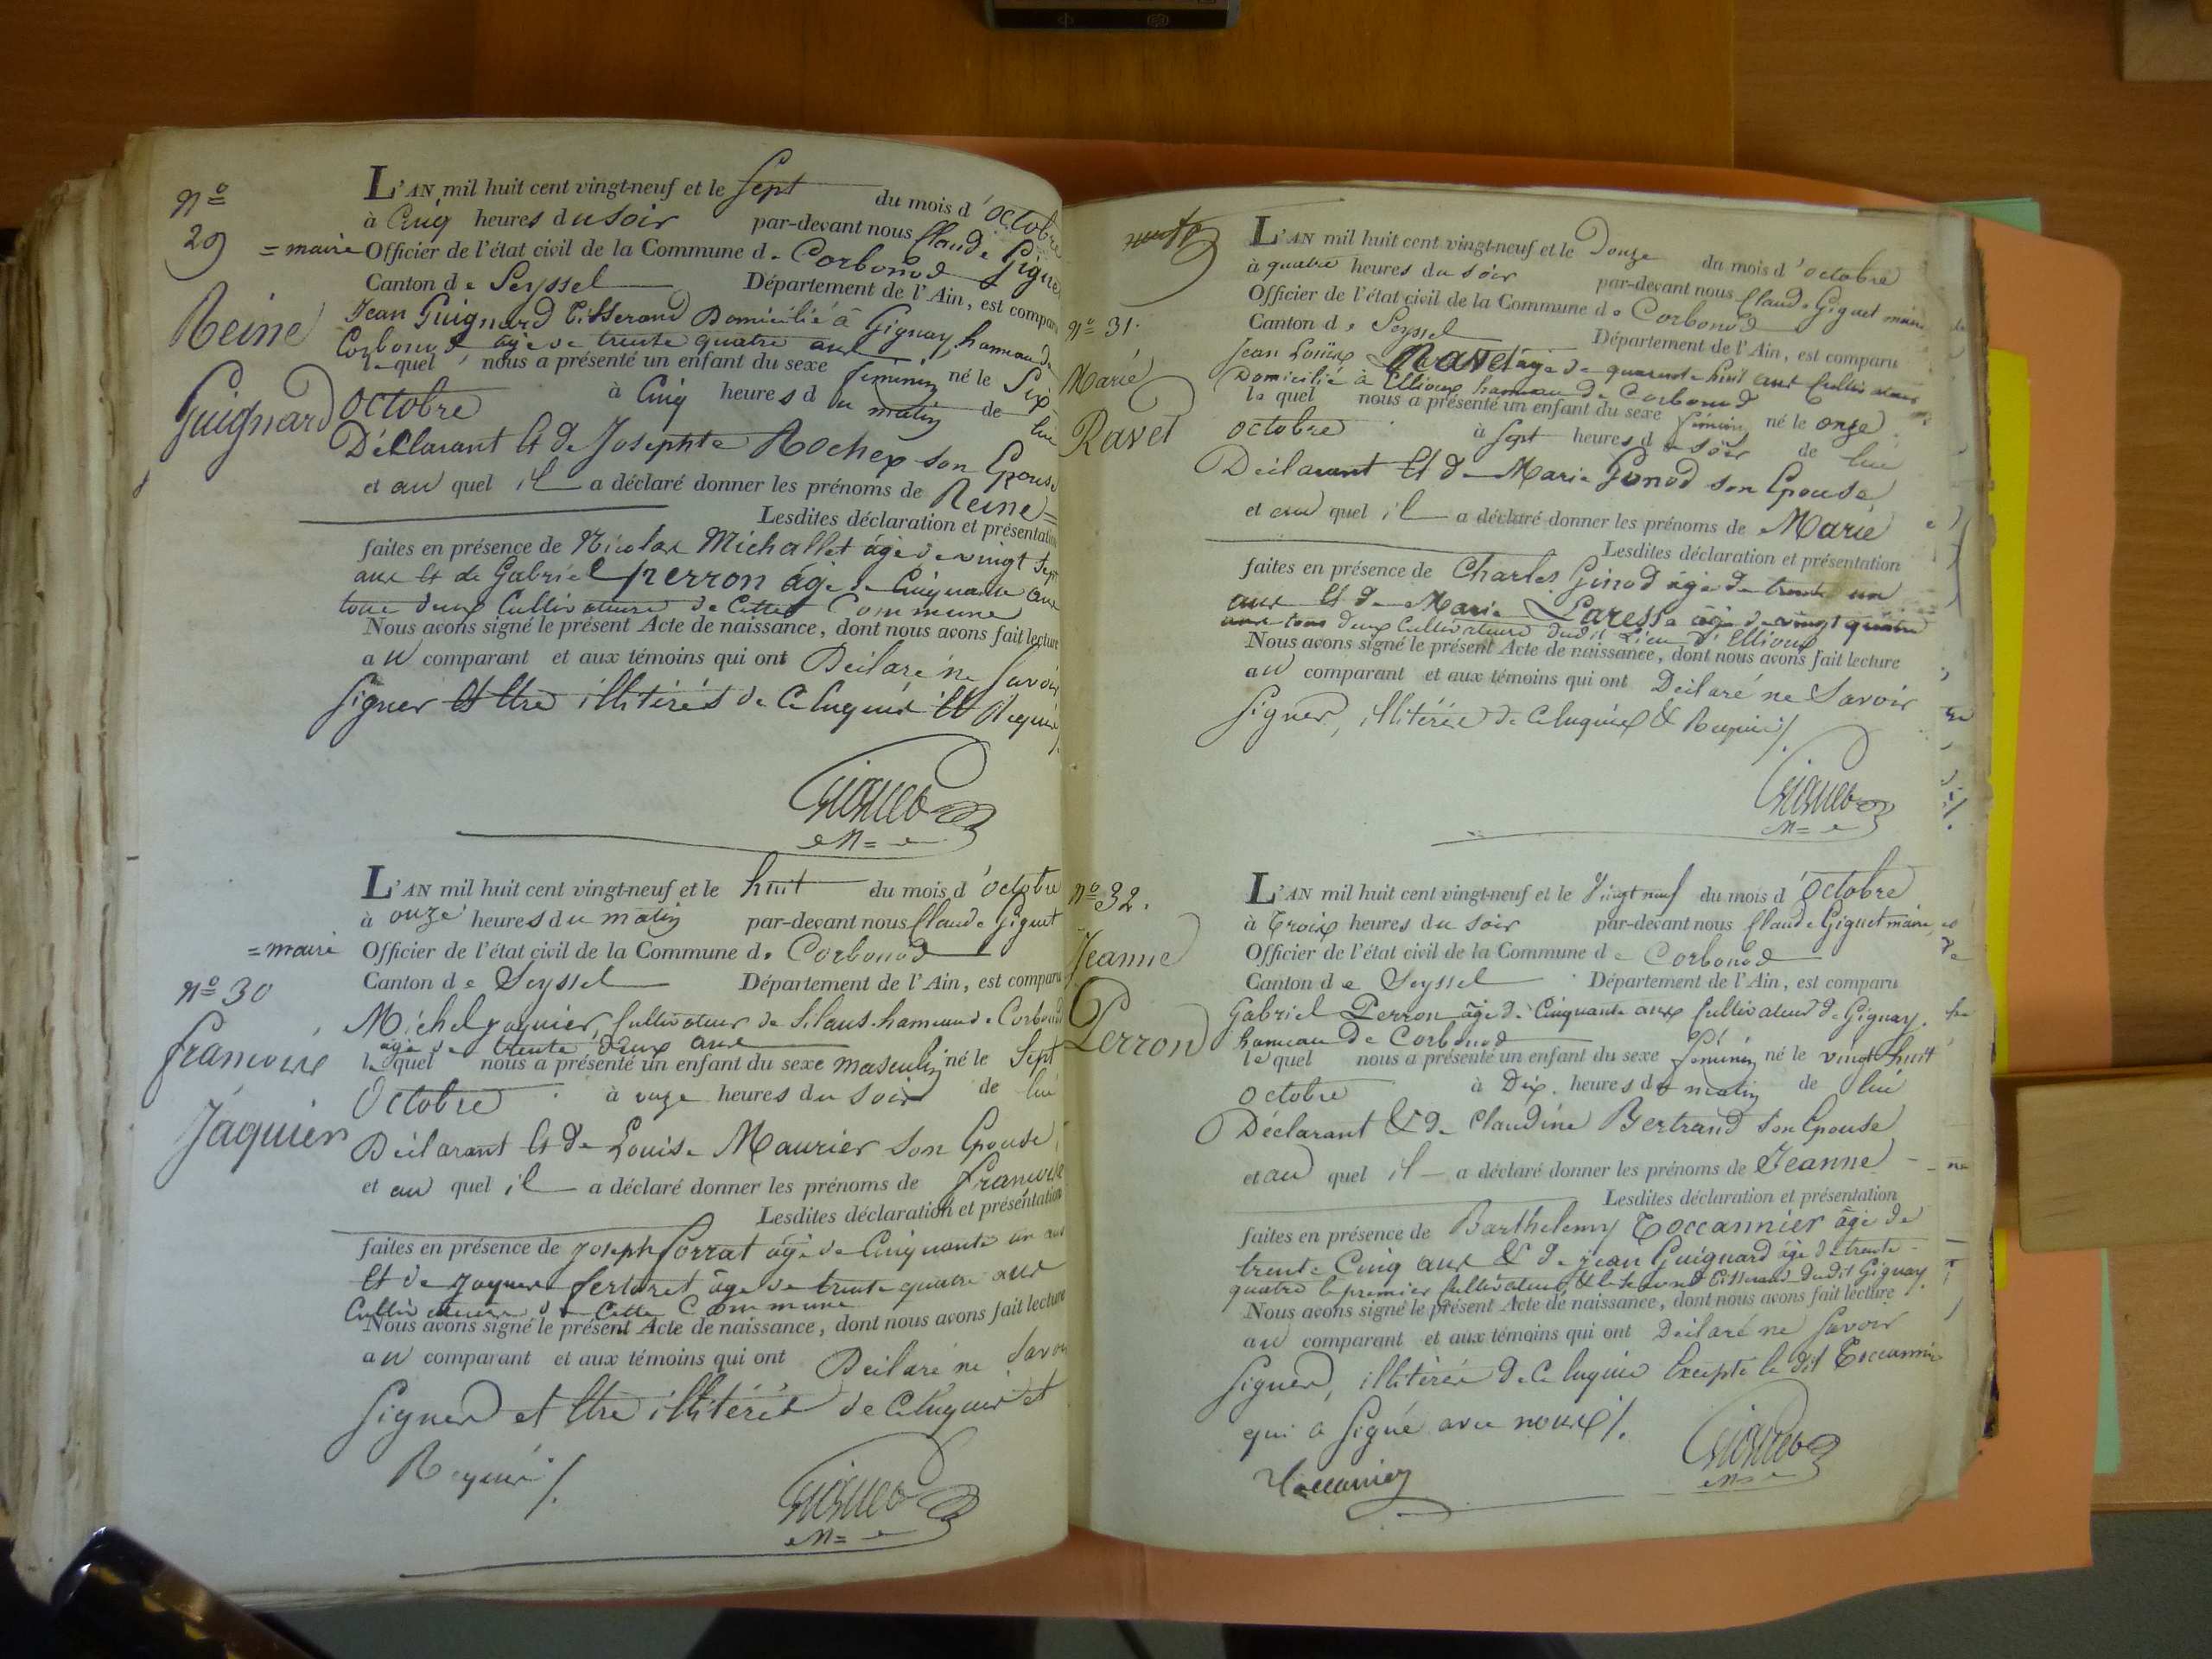 nº
29
Reine
Guignard
L'AN mil huit cent vingt-neuf et le Sept du mois d'octobre
à Cinq heures du soir par-devant nous Claude Gigue
=maire Officier de l'état civil de la Commune de Corbonod
Canton de Seyssel Département de l'Ain, est comparu
Jean Guignard Tisserand Domicilié à Gignay, hameau de
Corbonod âgé de trente quatre ans
lequel nous a présenté un enfant du sexe feminin né le Six
octobre à Cinq heures du matin de lui
Déclarant Et de Josephte Rochex son Epouse
et au quel il a déclaré donner les prénoms de Reine=
Lesdites déclaration et présentation
faites en présence de Nicolas Michallet âgé de vingt Sept
ans Et de Gabriel perron âgé de Cinquante ans
tous deux Cultivateurs de Cette Commune
Nous avons signé le présent Acte de naissance, dont nous avons fait lecture
au comparant et aux témoins qui ont Déclaré ne Savoir
Signer Et Etre illitérés de Ce Enquis Et Requis
Giguet
L'AN mil huit cent vingt-neuf et le huit du mois d'octobre
à onze heures du matin par-devant nous Claude Giguet
=maire Officier de l'état civil de la Commune de Corbonod
Canton de Seyssel Département de l'Ain, est comparu
nº 30
francoise
Jaquier
Michel jaquier, Cultivateur de Silans hameau de Corbonod
âgé de trente deux ans
lequel nous a présenté un enfant du sexe masculin né le Sept
Octobre à onze heures du soir de lui
Déclarant Et de Louise Maurier son Epouse
et au quel il a déclaré donner les prénoms de francoise
Lesdites déclaration et présentation
faites en présence de joseph Corrat âgé de Cinquante un ans
Et de Jaques fertoret âgé de trente quatre ans
Cultivateurs de Cette Commune
Nous avons signé le présent Acte de naissance, dont nous avons fait lecture
au comparant et aux témoins qui ont Déclaré ne Savoir
Signer et Etre illitérés de Ce Enquis et
Requis /.
Giguet
nº 31.
Marie
Ravet
L'AN mil huit cent vingt-neuf et le Douze du mois d'octobre
à quatre heures du soir par-devant nous Claude Giguet maire
Officier de l'état civil de la Commune de Corbonod
Canton de Seyssel Département de l'Ain, est comparu
Jean Louis Ravet âgé de quarante huit ans Cultivateur
Domicilié à Ellioux hameau de Corbonod
lequel nous a présenté un enfant du sexe féminin né le onze
octobre à Sept heures du soir de lui
Déclarant Et de Marie Gonod son Epouse
et au quel il a déclaré donner les prénoms de Marie
Lesdites déclaration et présentation
faites en présence de Charles Ginod âgé de trente un
ans Et de Marie Laresse âgé de vingt quatre
ans tous deux Cultivateurs dudit Lieu d'Ellioux
Nous avons signé le présent Acte de naissance, dont nous avons fait lecture
au comparant et aux témoins qui ont Déclaré ne Savoir
Signer, illitérés de Ce Enquis & Requis /.
Giguet
nº 32.
Jeanne
Perron
L'AN mil huit cent vingt-neuf et le Vingt neuf du mois d'Octobre
à Trois heures du soir par-devant nous Claude Giguet maire
Officier de l'état civil de la Commune de Corbonod
Canton de Seyssel Département de l'Ain, est comparu
Gabriel Perron âgé de Cinquante ans Cultivateur de Gignay,
hameau de Corbonod
lequel nous a présenté un enfant du sexe féminin né le vingt huit
octobre à Dix heures du matin de lui
Déclarant & de Claudine Bertrand son Epouse
et au quel il a déclaré donner les prénoms de Jeanne
Lesdites déclaration et présentation
faites en présence de Barthelemy Toccannier âgé de
trente Cinq ans & de jean Guignard âgé de trente
quatre le premier Cultivateur, & le second Tisserand dudit Gignay.
Nous avons signé le présent Acte de naissance, dont nous avons fait lecture
au comparant et aux témoins qui ont Déclaré ne Savoir
Signer, illitérés de Ce Enquis Excepté le dit Toccannier
qui a Signé avec nous /.
Toccanier
Giguet